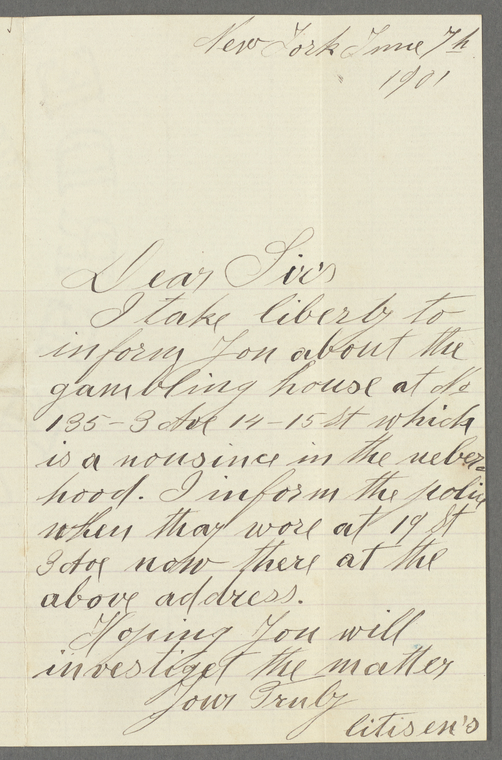 New York June 7th
1901
Dear Sirs
I take liberty to
inform you about the
gambling house at No
135-3 Ave 14-15 St which
is a nousince in the neber-
hood. I inform the police
when thay wore at 19 St
3 Ave now there at the
above address.
Hoping you will
investiget the matter
Your Truly
Citisen's